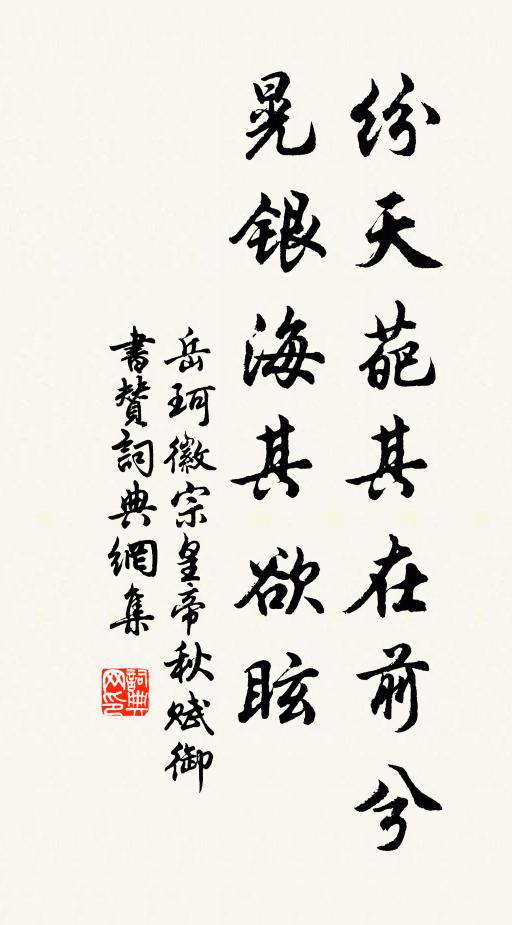 纷天葩其在前兮
晃银海其欲眩
岳珂徽宗皇帝秋赋御
書贊詞典網集
詞典网印